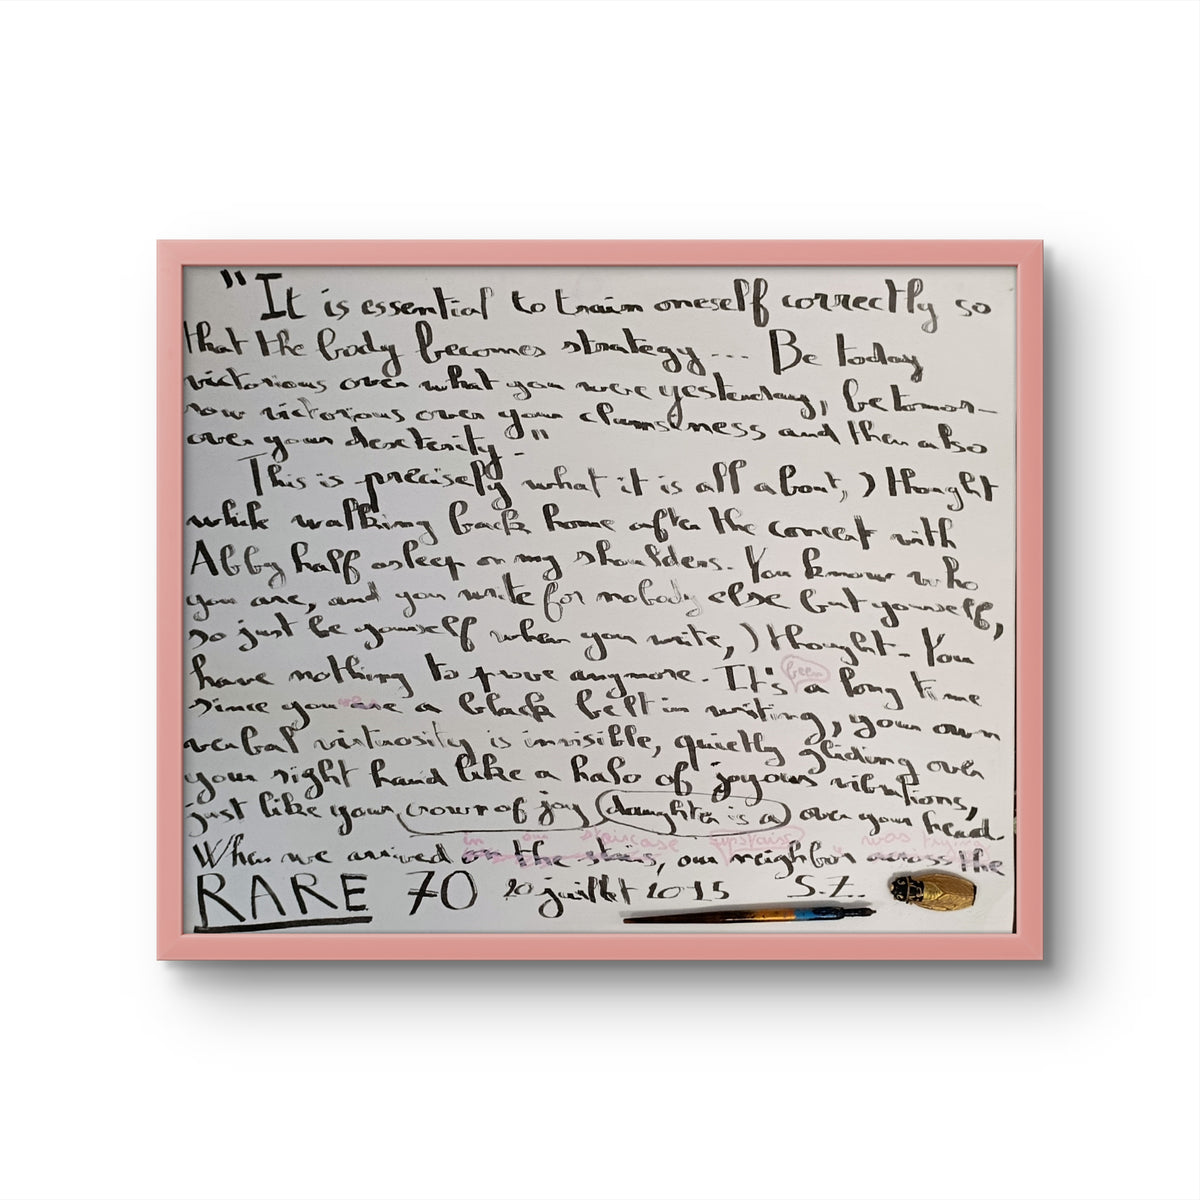 "It is essential to train oneself correctly so
that the body becomes strategy... Be today
victorious over what you were yesterday, be tomor-
row victorious over your clumsiness and then also
over your dexterity."
This is precisely what it is all about, I thought
while walking back home after the concert with
Abby half asleep on my shoulders. You know who
you are, and you write for nobody else but yourself,
so just be yourself when you write, I thought. You
have nothing to prove anymore. It's been a long time
since you were a black belt in writing, your own
verbal virtuosity is invisible, quietly gliding over
your right hand like a halo of joyous vibrations,
just like your crown of joy daughter is a over your head
in our staircase upstairs was trying
When we arrived on the stairs, our neighbor across the
RARE 70 20 juillet 2025 S.Z.